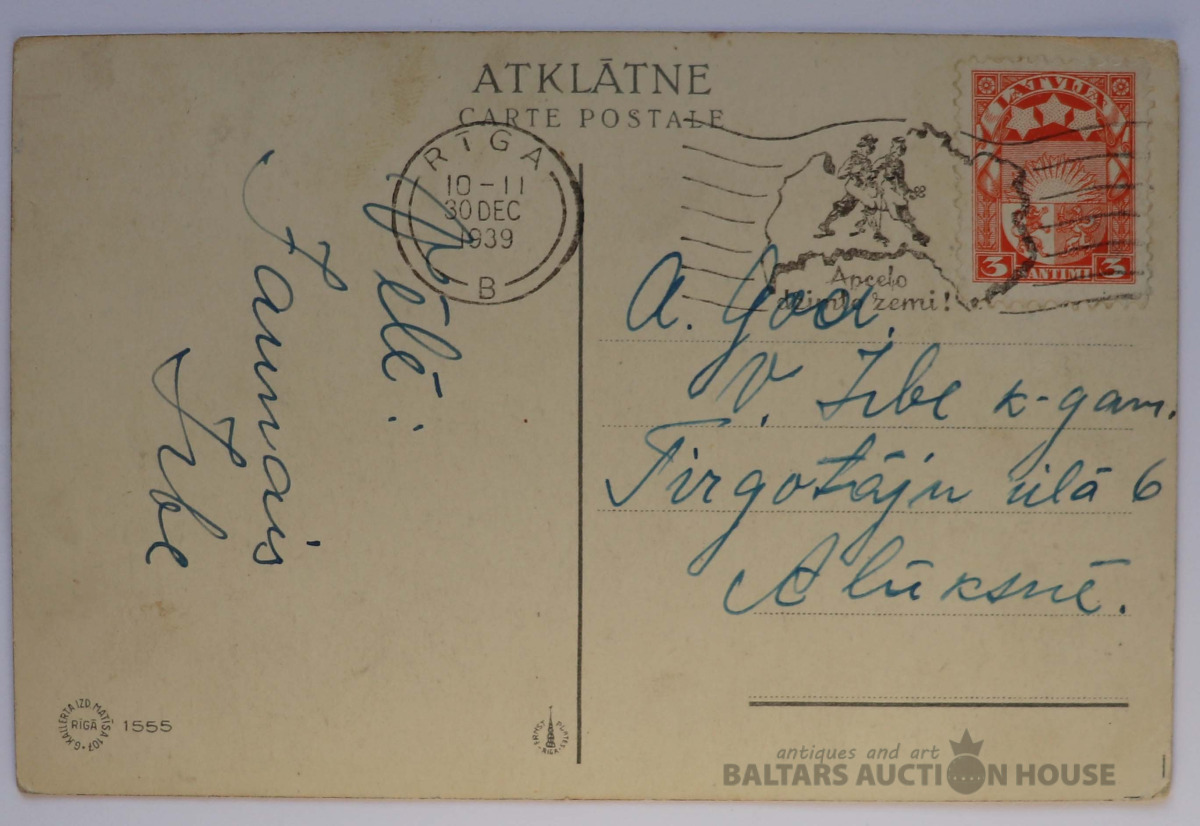 ATKLĀTNE
CARTE POSTALE
RĪGA
10-11
30 DEC
1939
B
Apceļo
dzimto zemi!
LATVIJA
3 SANTIMI 3
Vēlē:
Jaunais
Irbe
A. God.
V. Irbe k-gam.
Tirgotāju ielā 6
Alūksnē.
G. KALLERTA IZD. MATĪSA 107
RĪGĀ
1555
ERNST PLATES
antiques and art
BALTARS AUCTION HOUSE